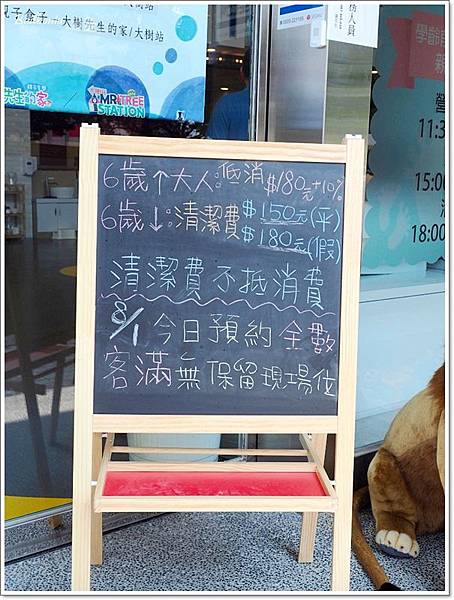 兒子盒子.大樹先生的家/大樹站
先生的家
MR.TREE
STATION
6歲↑大人:低消$180元+10%
6歲↓:清潔費$150元(平)
$180元(假)
清潔費不抵消費
8/1今日預約全數
客滿無保留現場位
務人員
學齡前
親
營
11:3
15:00
18:00